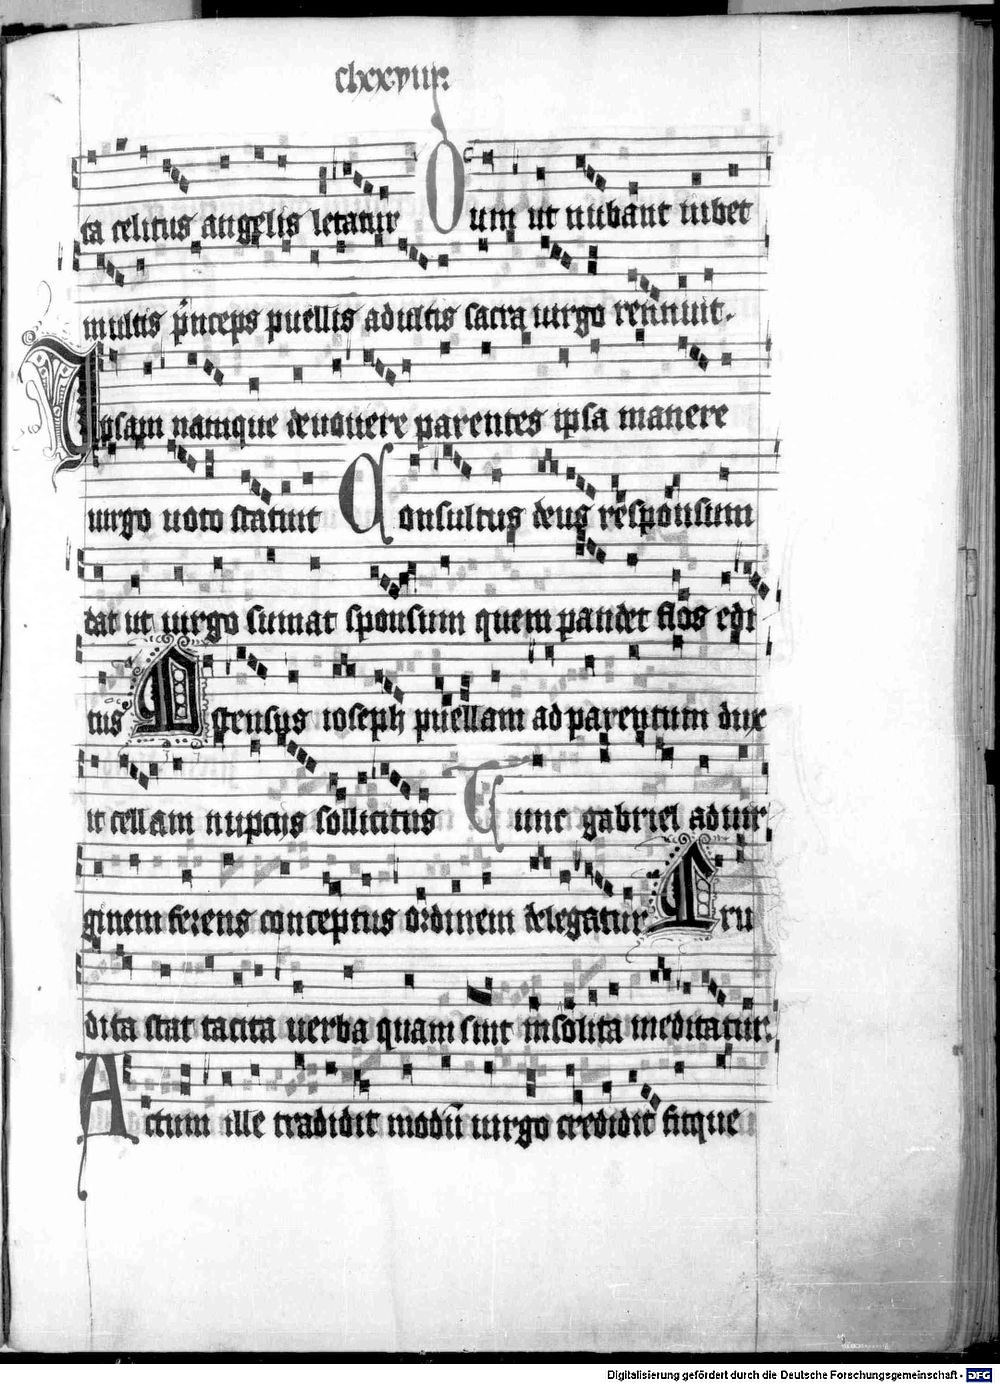 clxxviii
ta celitus angelis letatur Dum ut nubant iubet
multis p̄nceps puellis adultis sacra uirgo rennuit.
Ipsam namque deuouere parentes ipsa manere
uirgo uoto statuit Consultus deus responsum
dat ut uirgo sumat sponsum quem pandet flos edi
tus Assensus ioseph puellam ad parentum dux
it cellam nupcijs sollicitus Tunc gabriel ad uir
ginem ferens conceptus ordinem delegatur Eru
dita stat tacita uerba quam sint insolita meditatur.
Actum ille tradidit modū uirgo credidit sitque
Digitalisierung gefördert durch die Deutsche Forschungsgemeinschaft - DFG